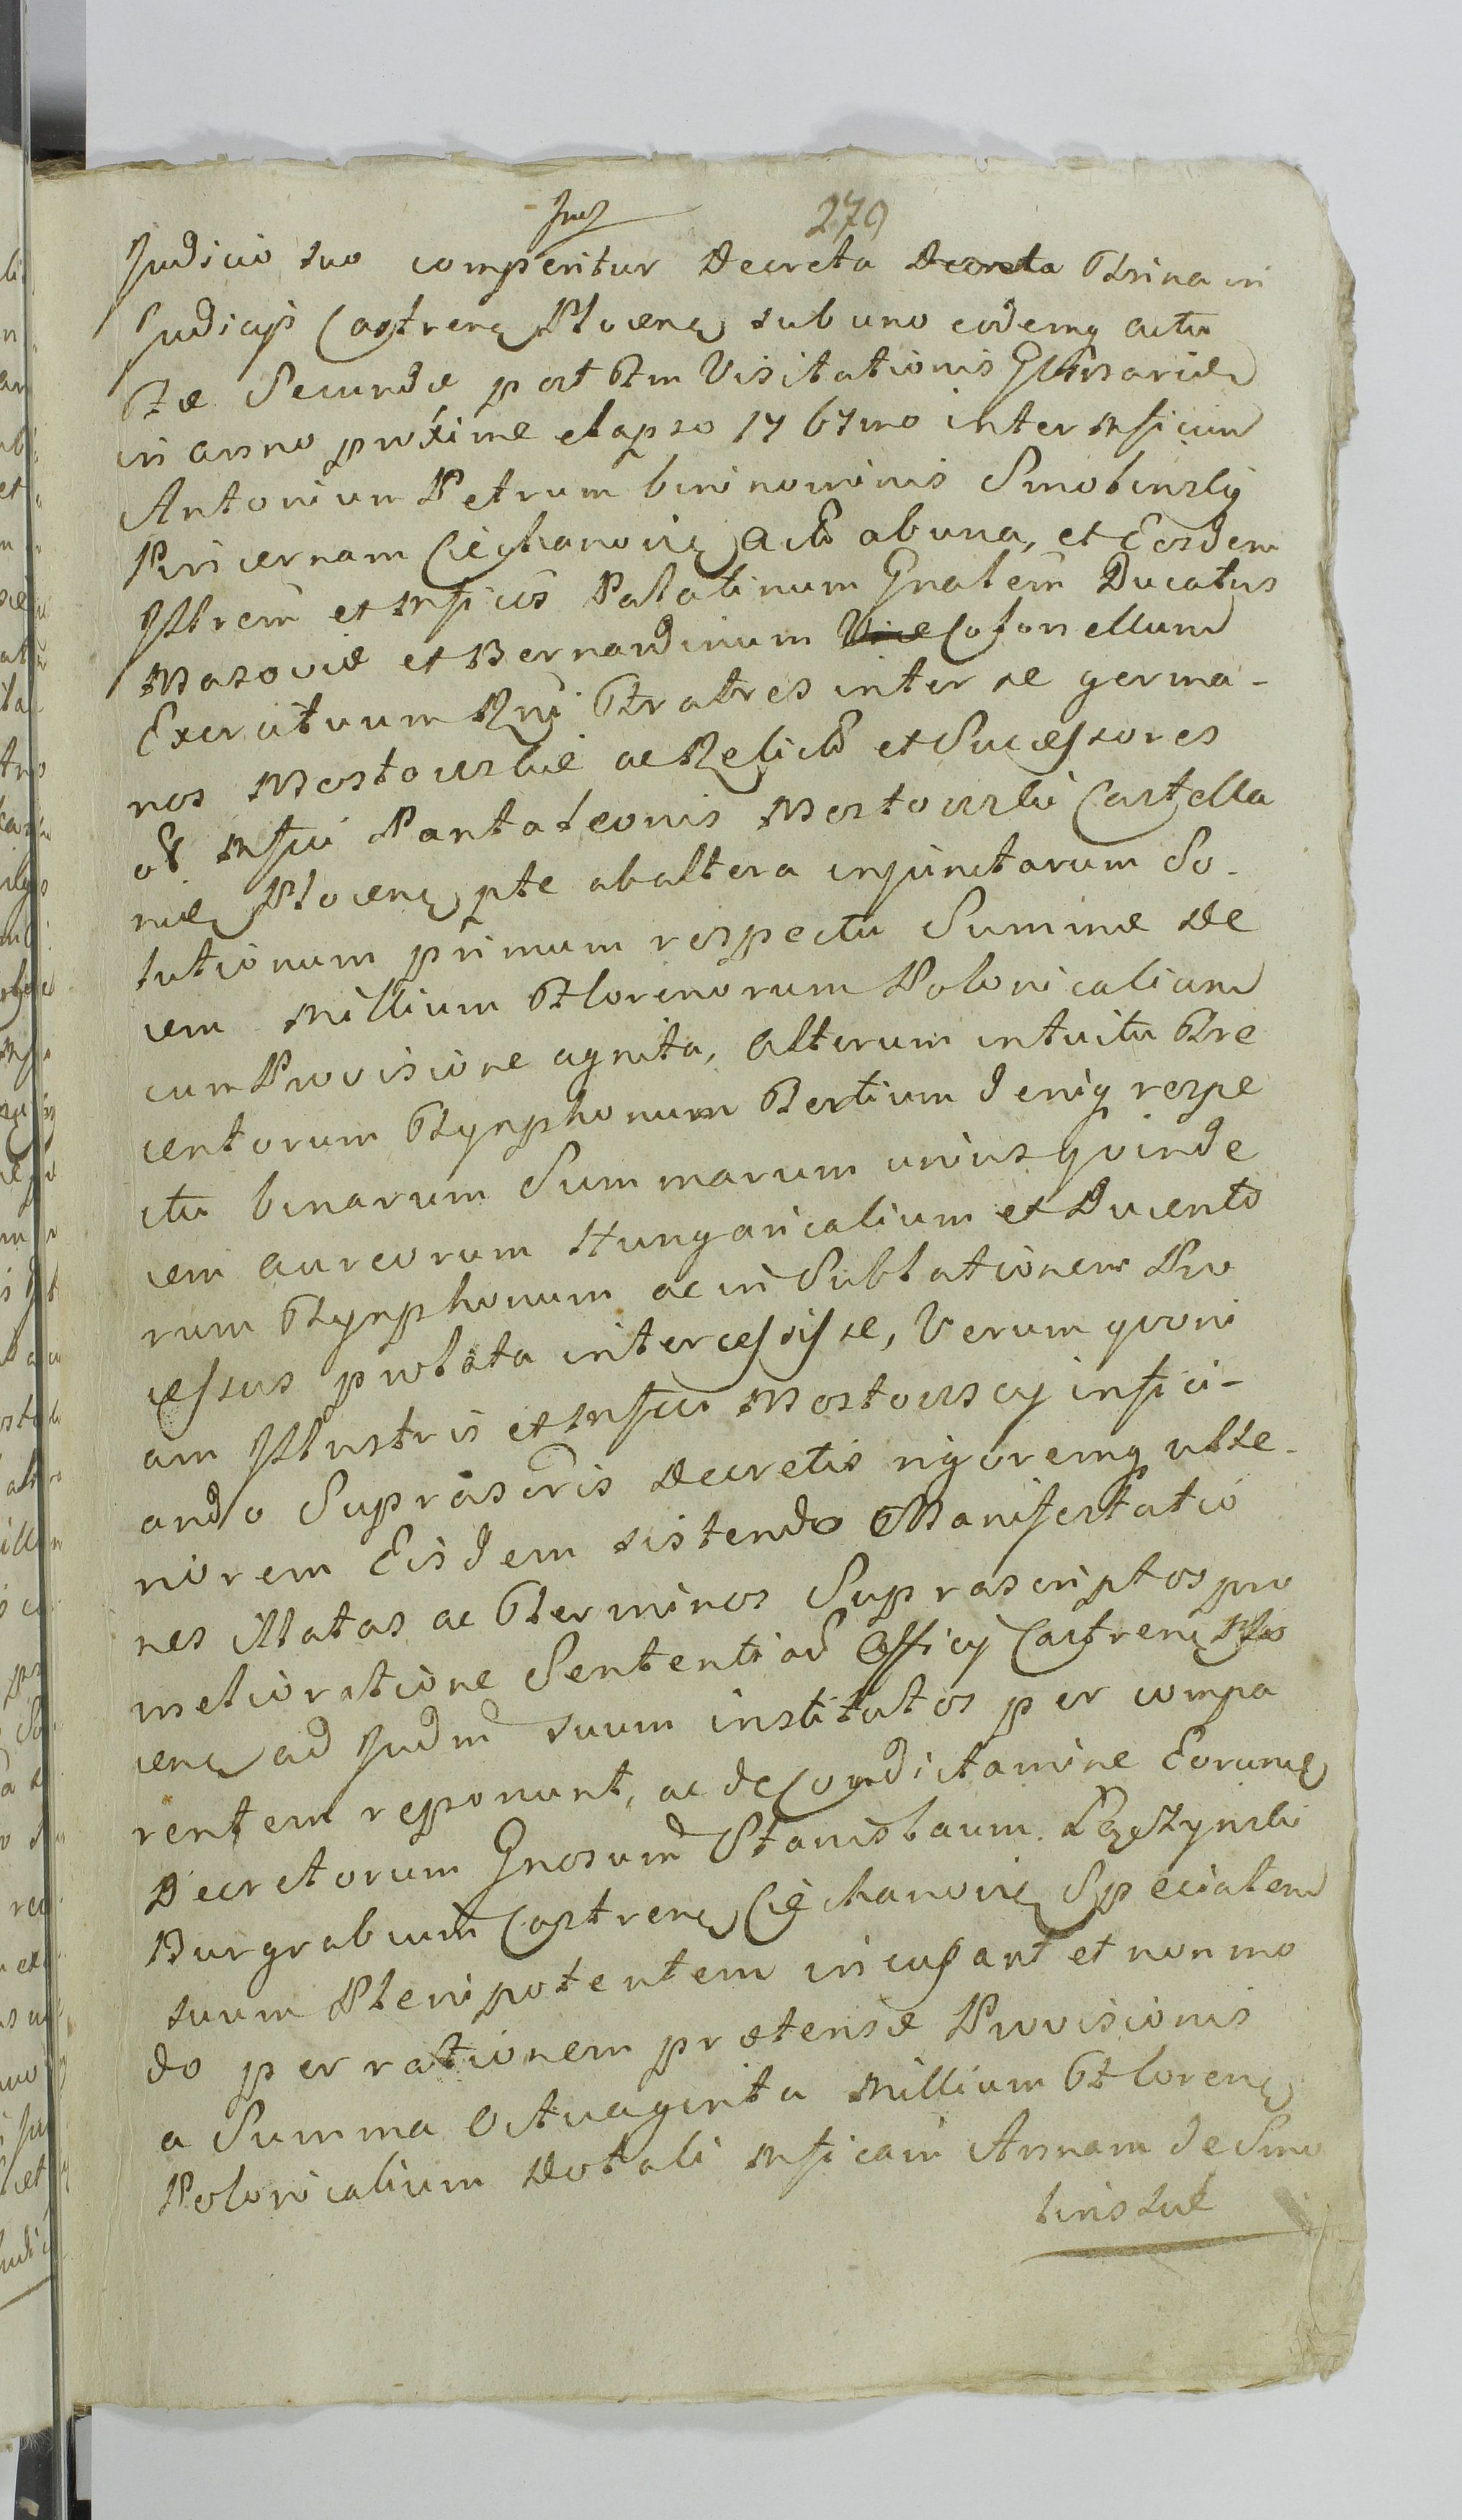 279
Judicio suo comperitur Decreta Decreta Trina in
Judicijs Castren Plocen sub uno eodemq actu
Fæ Secundæ post Ftm Visitationis Glorsariæ
in anno proxime elapso 1767mo inter Mficum
Antonium Petrum binnominis Smolinsky
Pincernam Ciechanovien Actô ab una, et Eosdem
Jllrem et Mficôs Palatinum Gnalem Ducatus
Masoviæ et Bernardinum Vice Colonellum
Exercituum Rgni Fratres inter se germa-
nos Mostowskie ac Relictô et Successores
ol. Mfici Pantaleonis Mostowski Castella
ni Plocen pte ab altera injunctarum So-
lutionum primum respectu Summæ De
cem Millium Florenorum Polonicalium
cum Provisione agnita, Alterum intuitu Tre
centorum Tynphonum Tertium deniq respe
ctu binarum Summarum unius quinde
cem Aureorum Hungaricalium et Ducento
rum Tynphonum ac in Sublationem Pro
cessus prolata intercessisse, Verum quoni
am Jllustris et Mfici Mostowscy infici-
ando Suprascris Decretis rigoremq ulte-
riorem Eisdem sistendo Manifestatio
nes illatas ac Terminos Suprascriptos pro
melioratione Sententi ad Officij Castren Plo
cen ad Judm suum institutos per compa
rentem reponunt, ac de Condictamine Eorum
Decretorum Gnosum Stanislaum Łęczynski
Burgrabium Castren Ciechanovien Specialem
suum Plenipotentem incusant et non mo
do per rationem prætensæ Provisionis
a Summa Octuaginta Millium Floren
Polonicalium Dotali Mficam Annam de Smo
linskie